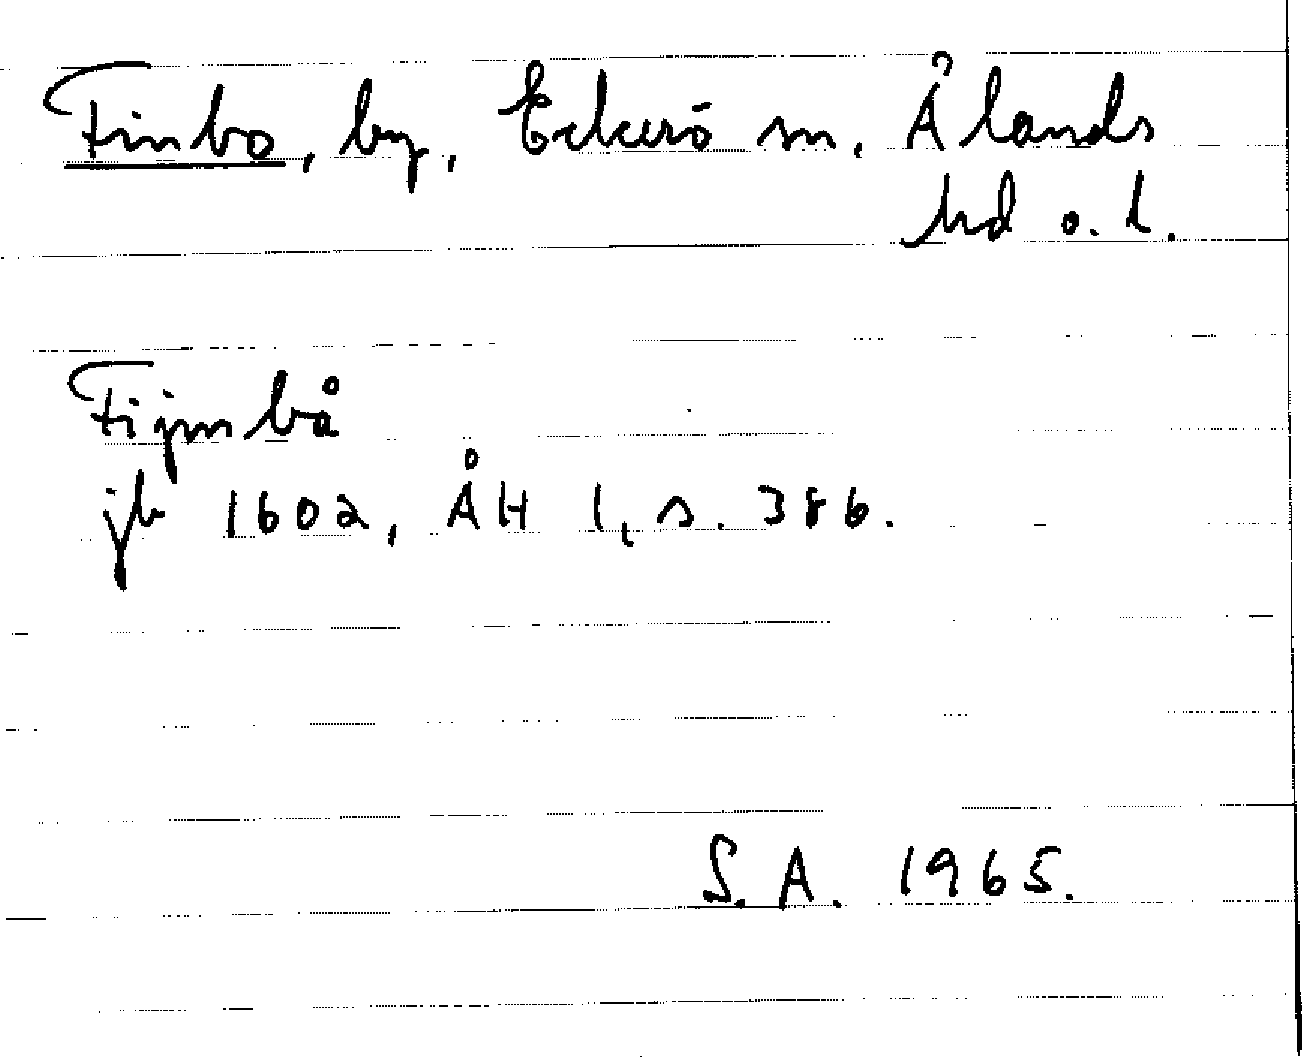 Finbo, by, Eckerö sn, Ålands
hd o. l.
Fijmbå
jb 1602, ÅH 1, s. 386.
S. A. 1965.